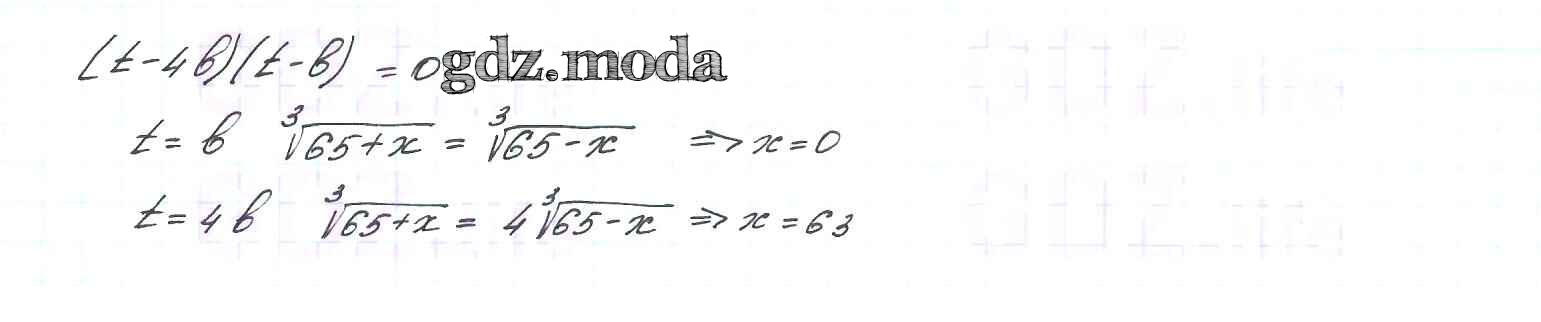 (t-4b)(t-b) = 0 gdz.moda
t = b ∛(65+x) = ∛(65-x) => x = 0
t = 4b ∛(65+x) = 4∛(65-x) => x = 63